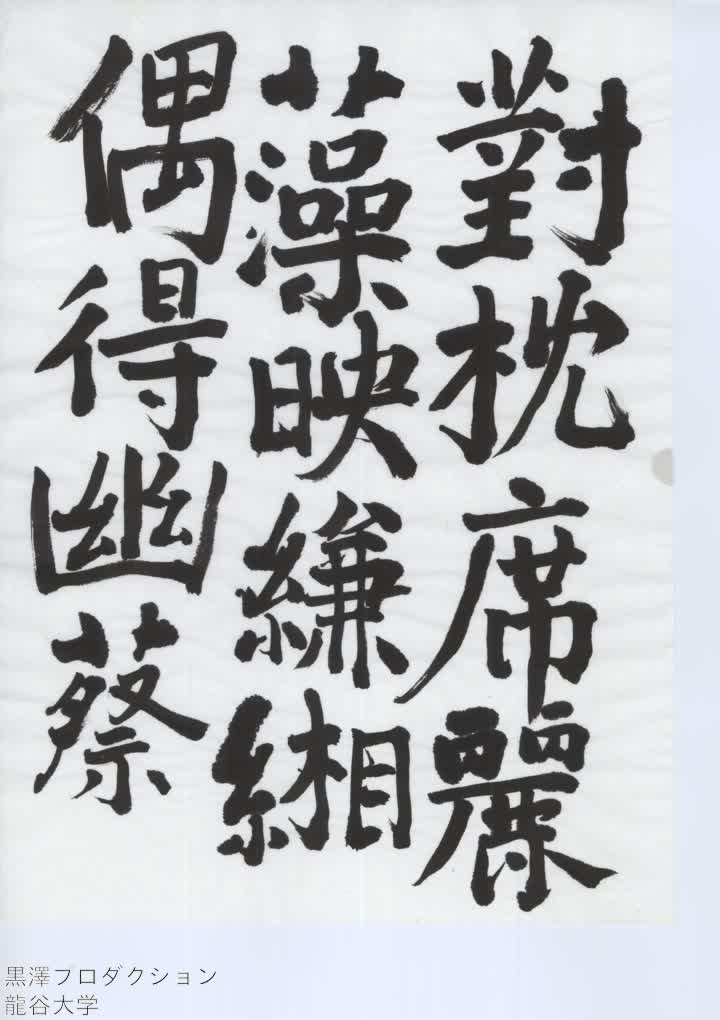 對枕席麗
藻映縑緗
偶得幽蔡
黒澤プロダクション
龍谷大学